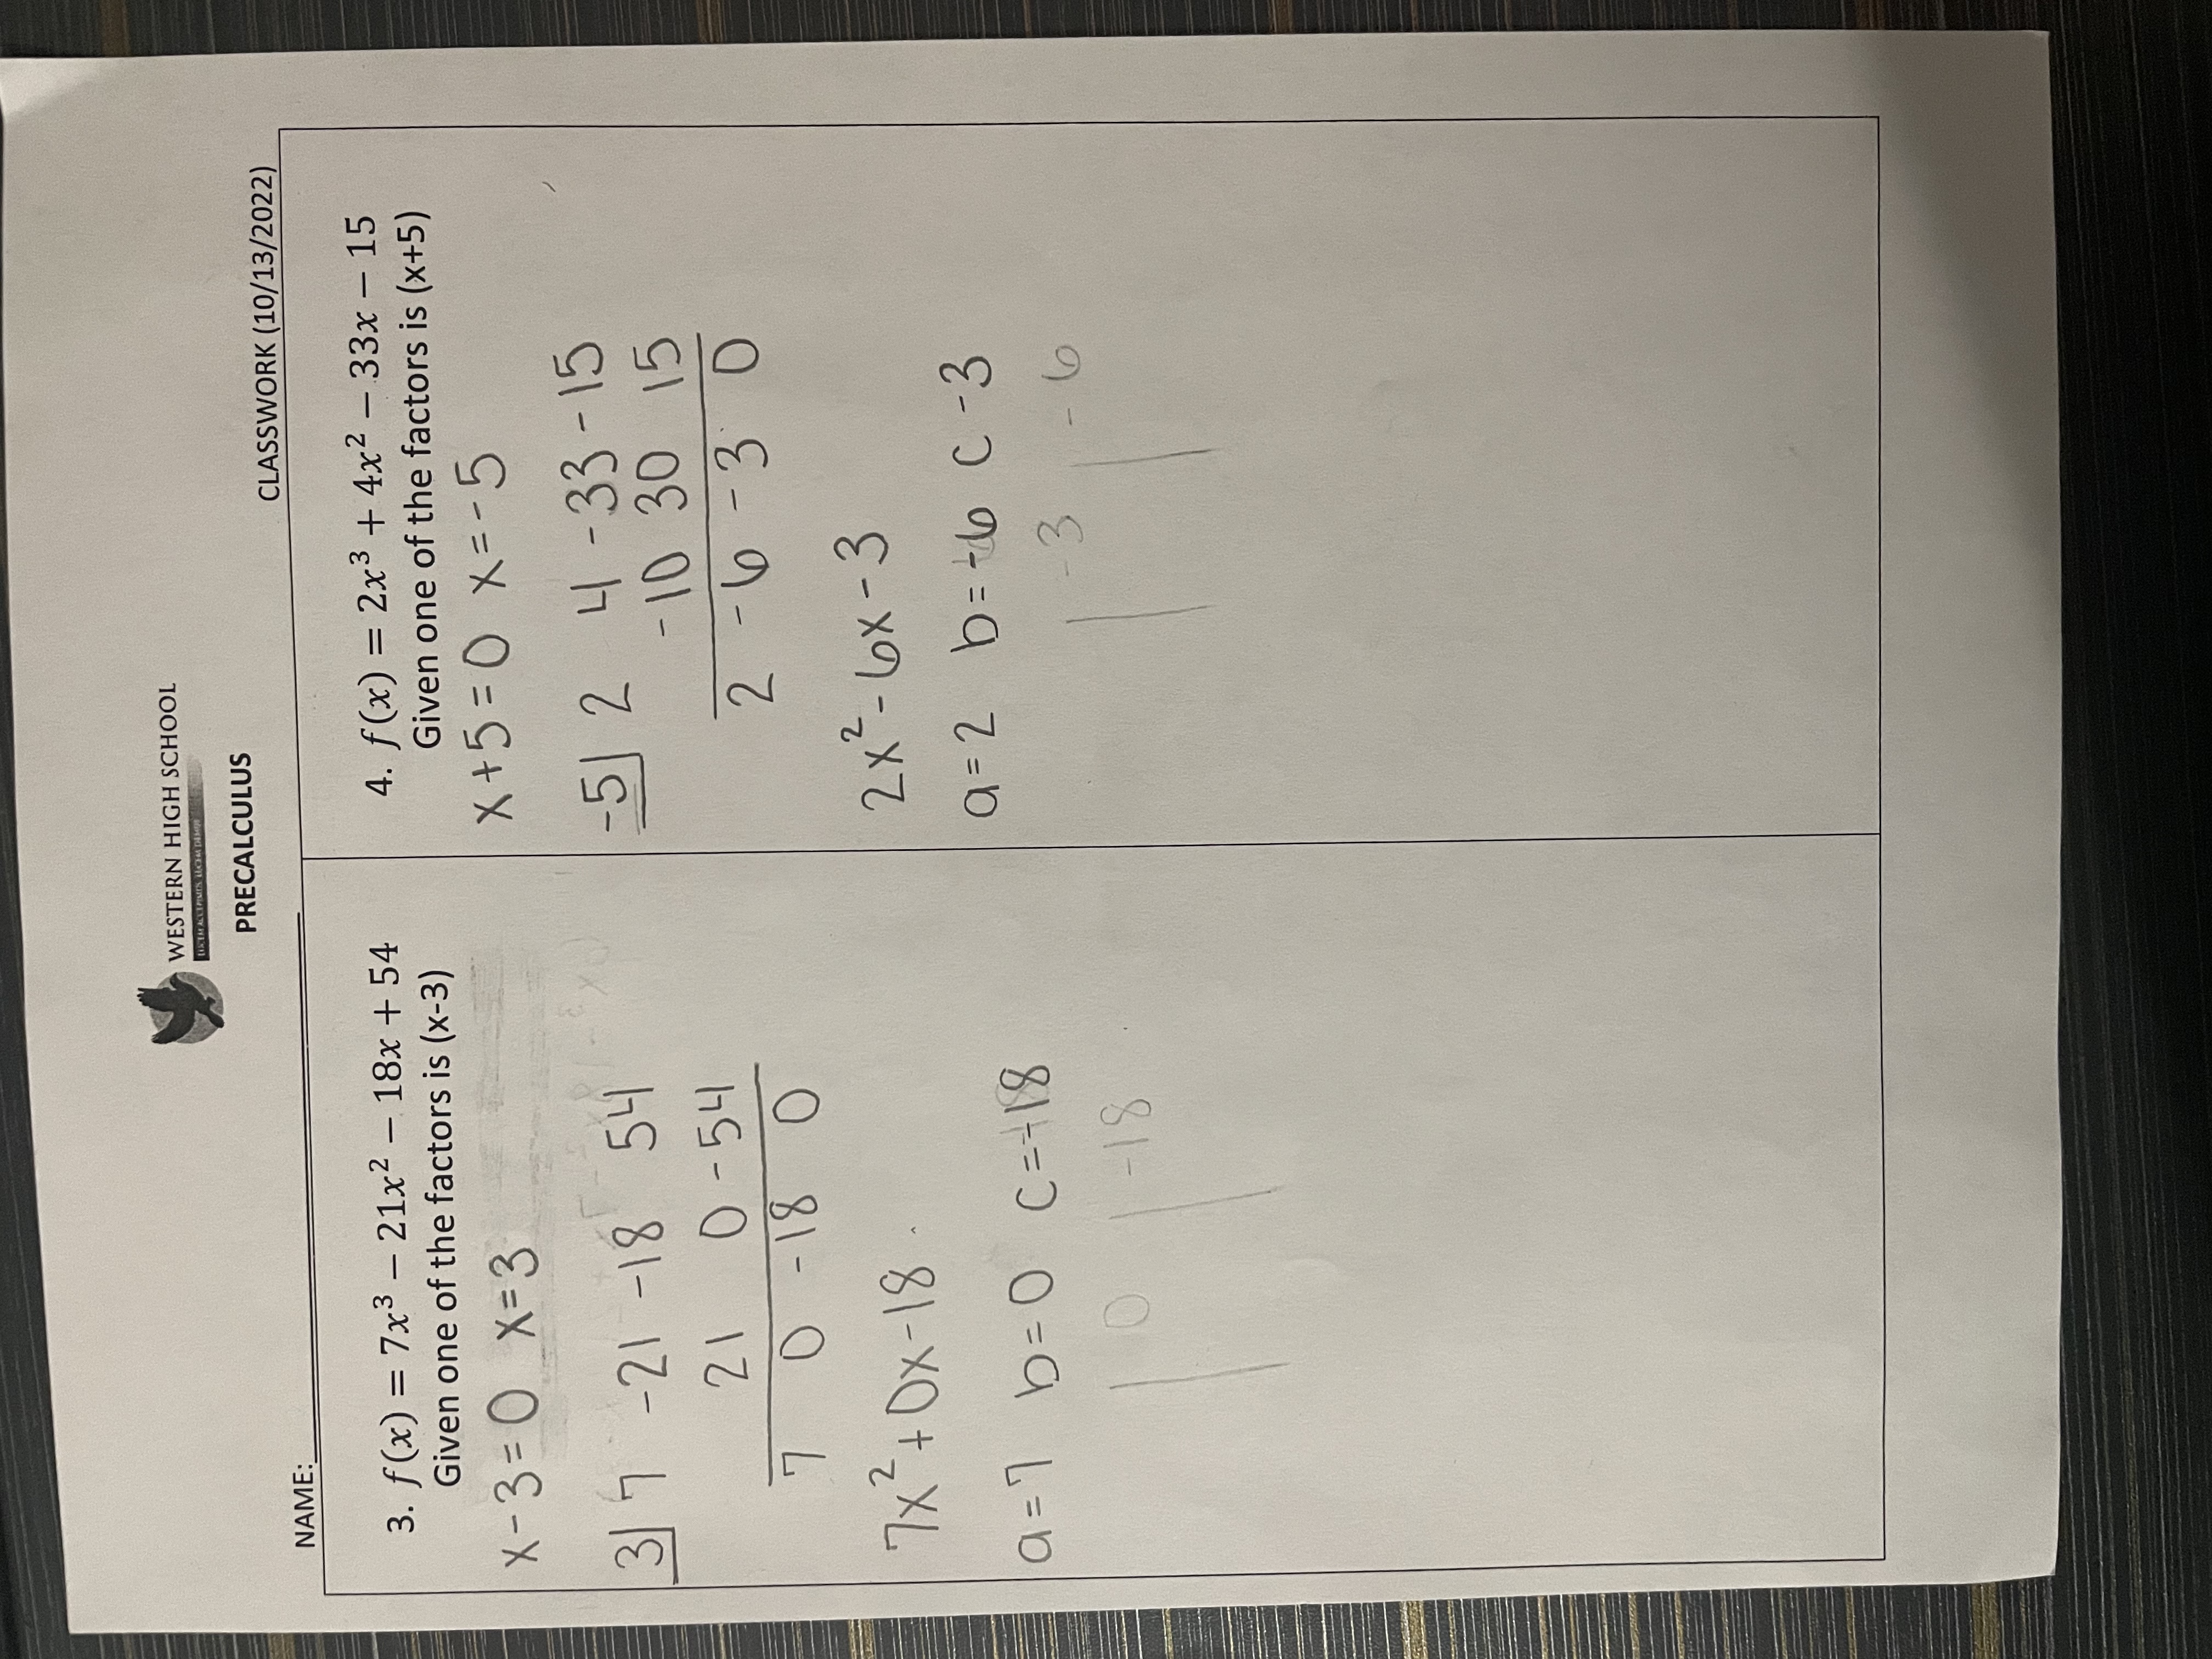 WESTERN HIGH SCHOOL
PRECALCULUS
NAME:
CLASSWORK (10/13/2022)
3. f(x) = 7x³ − 21x² − 18x + 54
Given one of the factors is (x-3)
x-3=0 x=3
3| 7 -21 -18 54
21 0 -54
7 0 -18 0
7x²+0x-18
a=7 b=0 c=-18
0 | -18
4. f(x) = 2x³ + 4x² − 33x − 15
Given one of the factors is (x+5)
x+5=0 x=-5
-5| 2 4 -33 -15
-10 30 15
2 -6 -3 0
2x²-6x-3
a=2 b=-6 c -3
-3 | -6